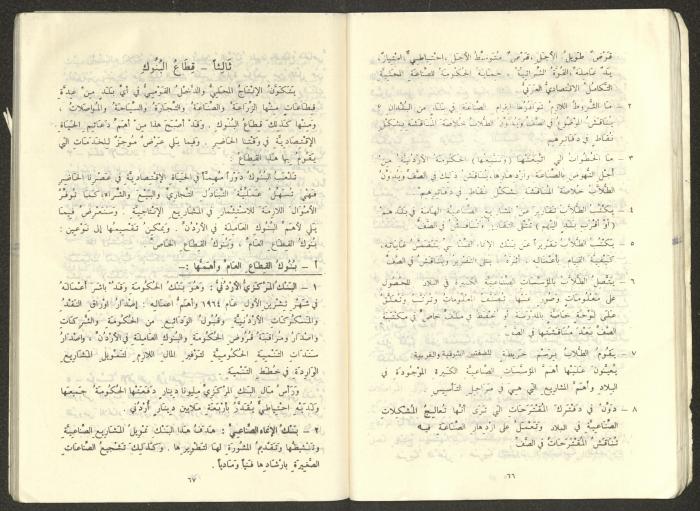 قرض طويل الأجل، قرض متوسط الأجل، احتياطي، امتياز،
يد عاملة، القوة الشرائية، حماية الحكومة للصناعة المحلية
التكامل الاقتصادي العربي.
٢ – ما الشروط اللازم توافرها لقيام الصناعة في بلد من البلدان ؟
يناقش الموضوع في الصف ويدون الطلاب خلاصة المناقشة بشكل
نقاط في دفاترهم
٣ – ما الخطوات التي اتبعتها (وستتبعها) الحكومة الأردنية من
أجل النهوض بالصناعة وازدهارها، يناقش ذلك في الصف ويدون
الطلاب خلاصة المناقشة بشكل نقاط في دفاترهم
٤ – يكتب الطلاب تقارير عن المشاريع الصناعية الهامة في بلدهم
(أو أقرب بلد اليهم) تتلى التقارير وتناقش في الصف
٥ – يكتب الطلاب تقريراً عن بنك الإنماء الصناعي يتضمن غاياته،
كيفية القيام بأعماله، أثره، يتلى التقرير ويناقش في الصف
٦ – يتصل الطلاب بالمؤسسات الصناعية الكبيرة في البلاد للحصول
على معلومات وصور عنها. تصنف المعلومات وترتب وتعلق
على لوحة خاصة بالمدرسة أو تحفظ في ملف خاص في مكتبة
الصف بعد مناقشتها في الصف
٧ – يقوم الطلاب برسم خريطة للضفتين الشرقية والغربية.
يعينون عليها أهم المؤسسات الصناعية الكبيرة الموجودة في
البلاد وأهم المشاريع التي هي في مراحل التأسيس
٨ – دون في دفترك المقترحات التي ترى أنها تعالج المشكلات
الصناعية في البلاد وتعمل على ازدهار الصناعة فيه
تناقش المقترحات في الصف
٦٦
ثالثاً – قطاع البنوك
يتكون الإنتاج المحلي والدخل القومي في أي بلد من عدة
قطاعات منها الزراعة والصناعة والتجارة والسياحة والمواصلات ،
ومنها كذلك قطاع البنوك . وقد أصبح هذا من أهم دعائم الحياة
الاقتصادية في وقتنا الحاضر . وفيما يلي عرض موجز للخدمات التي
يقوم بها هذا القطاع :
تلعب البنوك دوراً مهماً في الحياة الاقتصادية في عصرنا الحاضر
فهي تسهل عملية التبادل التجاري والبيع والشراء، كما توفر
الأموال اللازمة للاستثمار في المشاريع الإنتاجية . وسنعرض فيما
يلي لأهم البنوك العاملة في الأردن . ويمكن تقسيمها إلى نوعين :
بنوك القطاع العام ، وبنوك القطاع الخاص
أ – بنوك القطاع العام وأهمها :–
١ – البنك المركزي الأردني : وهو بنك الحكومة وقد باشر أعماله
في شهر تشرين الأول عام ١٩٦٤ وأهم أعماله : إصدار أوراق النقد
والمسكوكات الأردنية وقبول الودائع من الحكومة والشركات
وإصدار ومراقبة قروض الحكومة والبنوك العاملة في الأردن ، وإصدار
سندات التنمية الحكومية لتوفير المال اللازم لتمويل المشاريع
الواردة في خطط التنمية
ورأس مال البنك المركزي مليونا دينار دفعتها الحكومة جميعها
ولديه احتياطي يقدر بأربعة ملايين دينار أردني .
٢ – بنك الإنماء الصناعي : هدف هذا البنك تمويل المشاريع الصناعية
وتنشيطها وتقديم المشورة لها لتطويرها . وكذلك تشجيع الصناعات
الصغيرة بإرشادها فنياً ومادياً .
٦٧